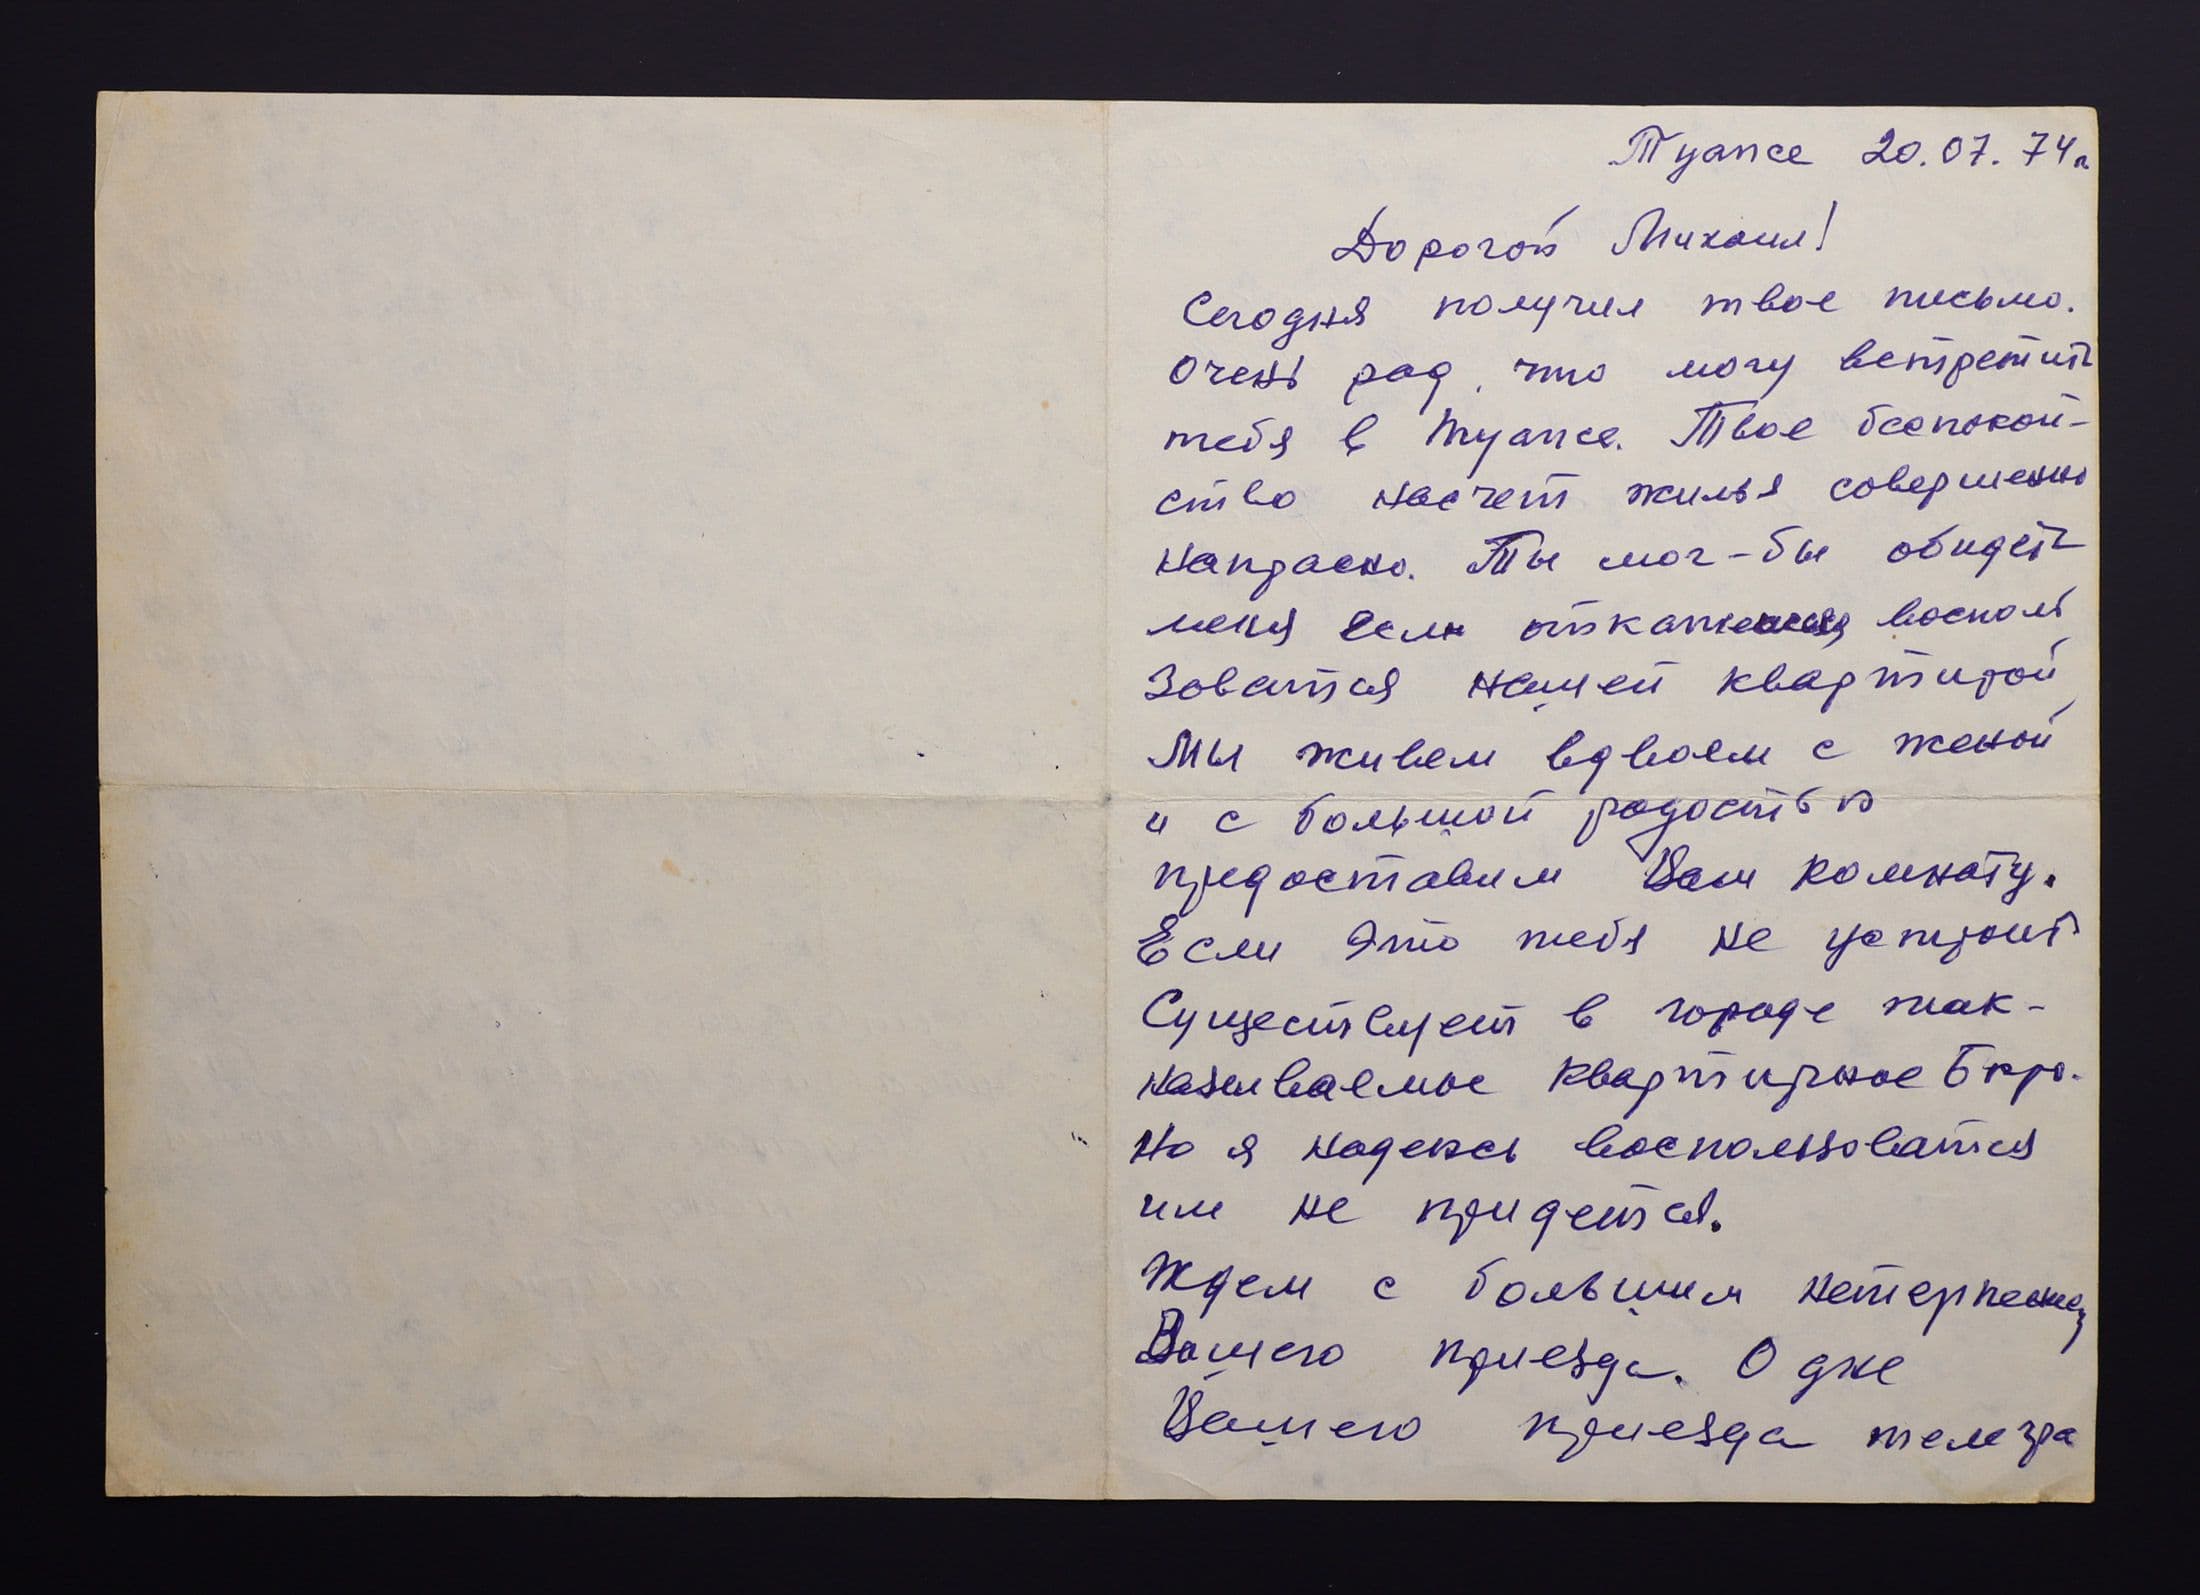 Туапсе 20.07.74г
Дорогой Михаил!
Сегодня получил твое письмо.
Очень рад, что могу встретить
тебя в Туапсе. Твое беспокой-
ство насчет жилья совершенно
напрасно. Ты мог-бы обидеть
меня если откажешься восполь
зоватся нашей квартирой
Мы живем вдвоем с женой
и с большой радостью
предоставим Вам комнату.
Если это тебя не устроит
Существует в городе так-
называемое квартирное бюро.
Но я надеюсь воспользоватся
им не придется.
Ждем с большим нетерпением
Вашего приезда. О дне
Вашего приезда телегра